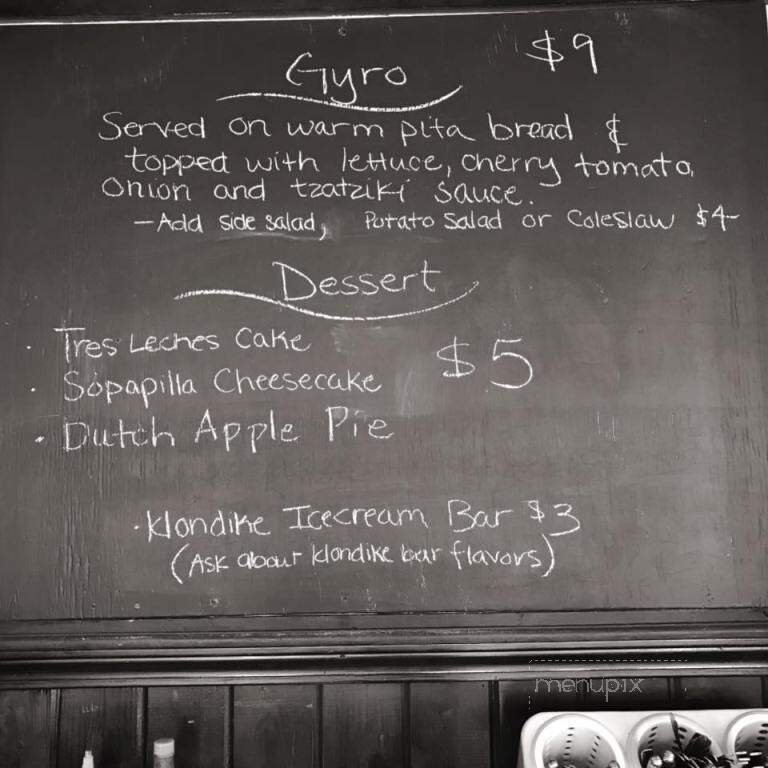 Gyro $9
Served on warm pita bread &
topped with lettuce, cherry tomato,
onion and tzatziki sauce.
—Add side salad, Potato Salad or Coleslaw $4-
Dessert
· Tres Leches Cake
· Sopapilla Cheesecake $5
· Dutch Apple Pie
· Klondike Icecream Bar $3
(Ask about klondike bar flavors)
menupix